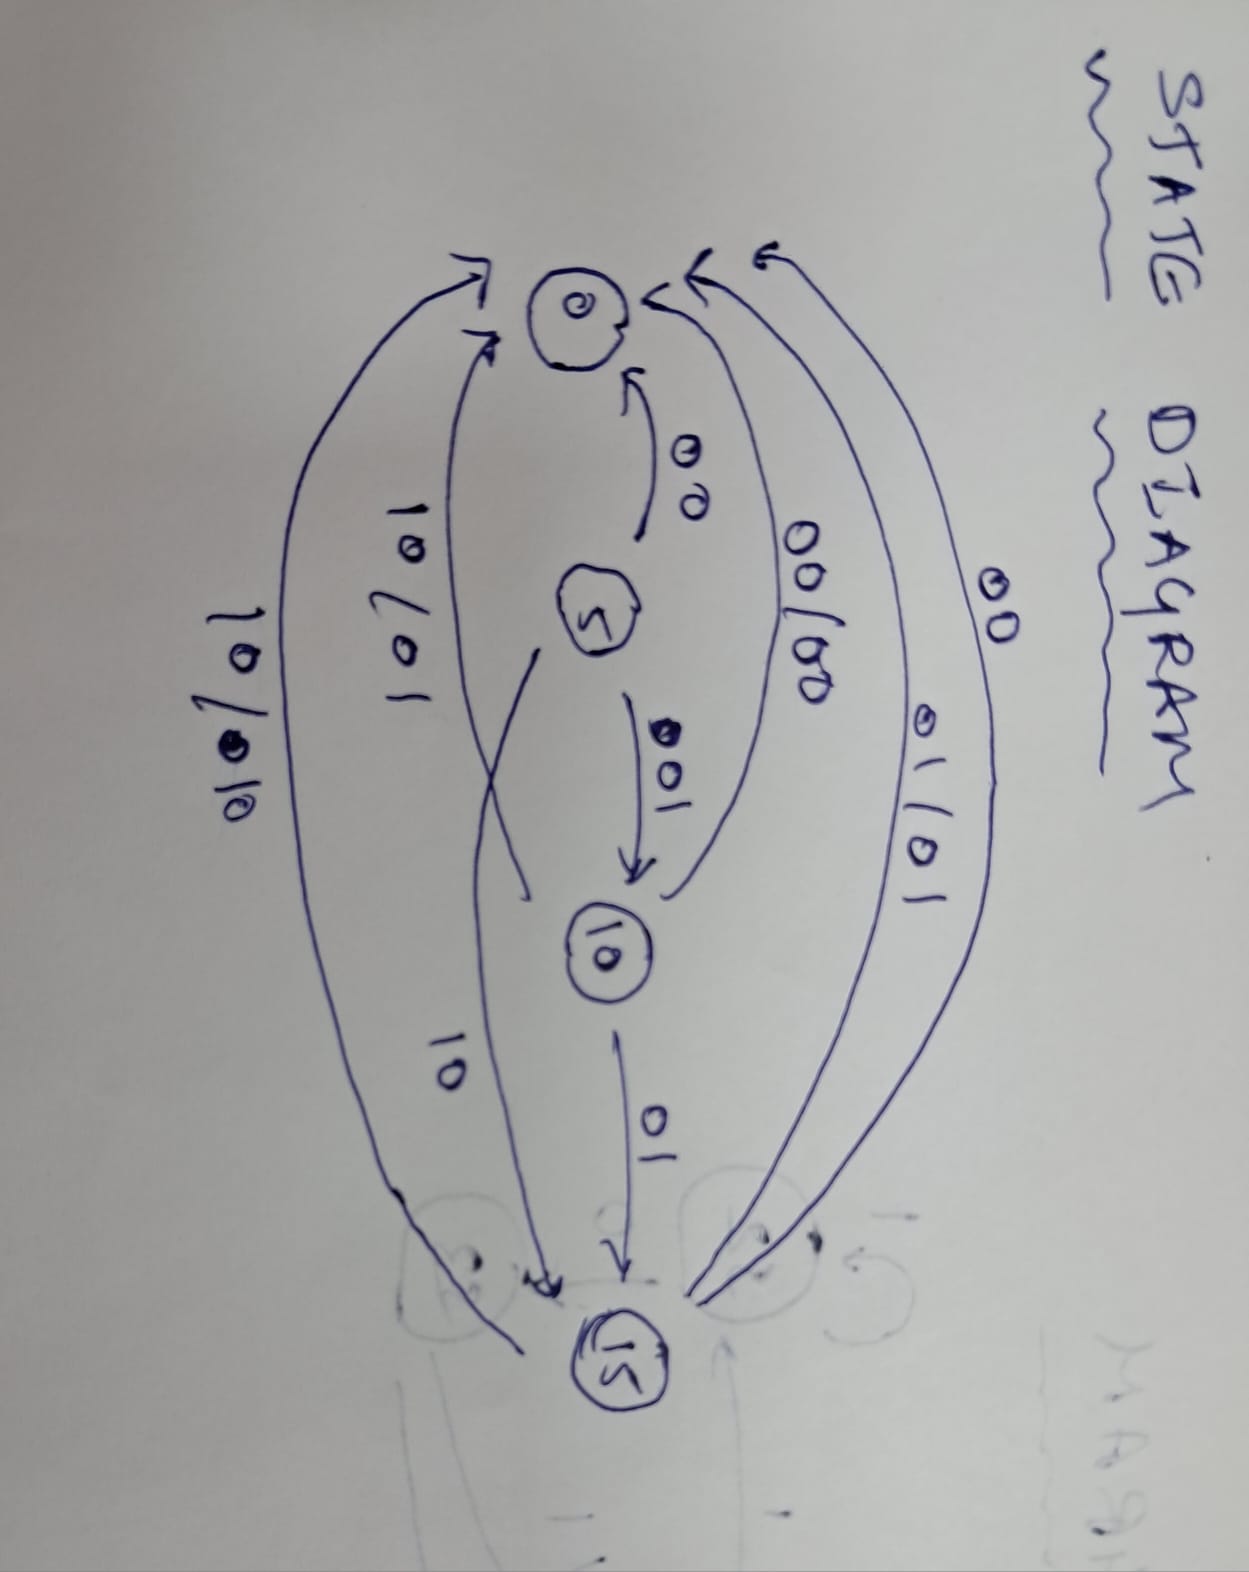 STATE DIAGRAM
00
01/01
00/00
00
001
01
0
5
10
15
10/01
10
10/010